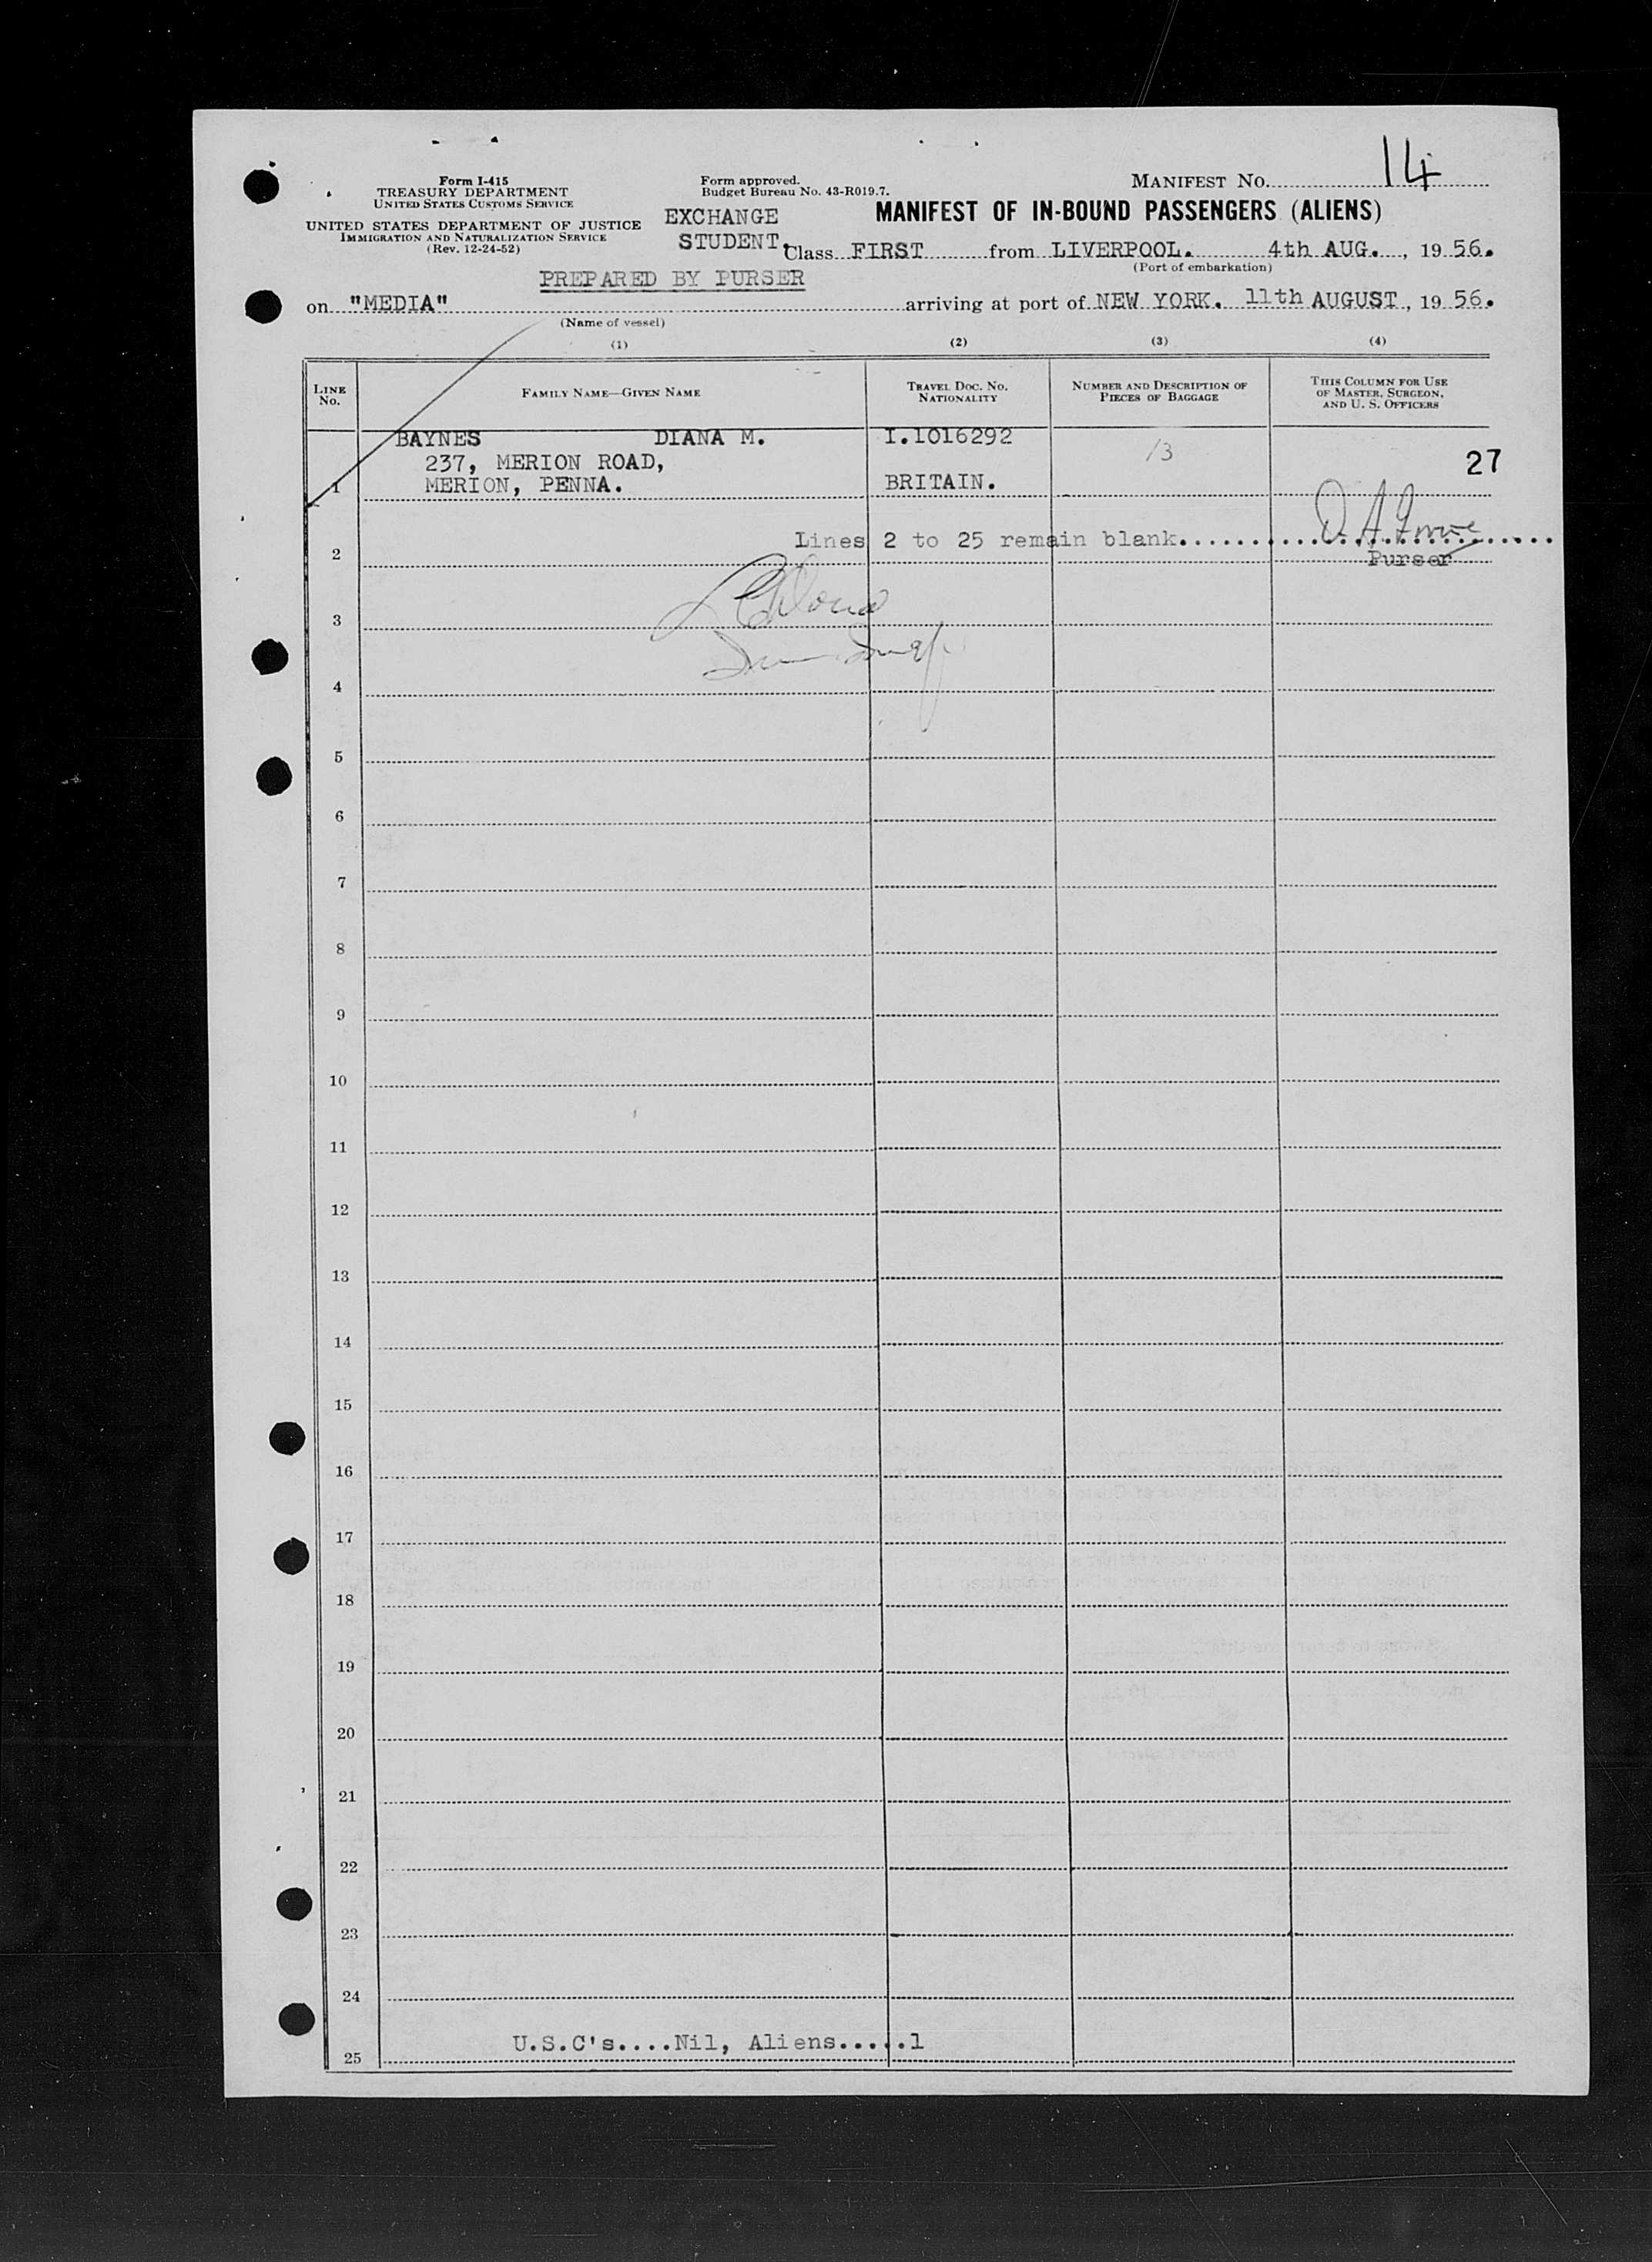 Form I-415
TREASURY DEPARTMENT
UNITED STATES CUSTOMS SERVICE
UNITED STATES DEPARTMENT OF JUSTICE
IMMIGRATION AND NATURALIZATION SERVICE
(Rev. 12-24-52)
Form approved.
Budget Bureau No. 43-R019.7.
MANIFEST NO. 14
EXCHANGE
STUDENT.
MANIFEST OF IN-BOUND PASSENGERS (ALIENS)
Class FIRST from LIVERPOOL. 4th AUG., 1956.
(Port of embarkation)
PREPARED BY PURSER
on "MEDIA" arriving at port of NEW YORK. 11th AUGUST, 1956.
(Name of vessel)
(1) (2) (3) (4)
LINE NO.
FAMILY NAME—GIVEN NAME
TRAVEL DOC. NO. NATIONALITY
NUMBER AND DESCRIPTION OF PIECES OF BAGGAGE
THIS COLUMN FOR USE OF MASTER, SURGEON, AND U. S. OFFICERS
BAYNES DIANA M. I.1016292 13
237, MERION ROAD, 27
1 MERION, PENNA. BRITAIN.
Lines 2 to 25 remain blank...........................
2 Purser
3
4
5
6
7
8
9
10
11
12
13
14
15
16
17
18
19
20
21
22
23
24
U.S.C's....Nil, Aliens.....1
25